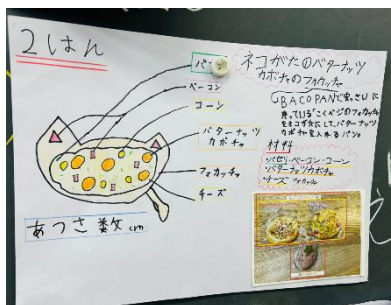 2はん
ベーコン
コーン
バターナッツ
カボチャ
フォカッチャ
チーズ
あつさ 数cm
ネコがたのバターナッツ
カボチャのフォカッチャ
BACOPANで
ネコがたにして、バターナッツ
カボチャを入れるパン
材料
・パセリ・ベーコン・コーン
・バターナッツカボチャ
・チーズ